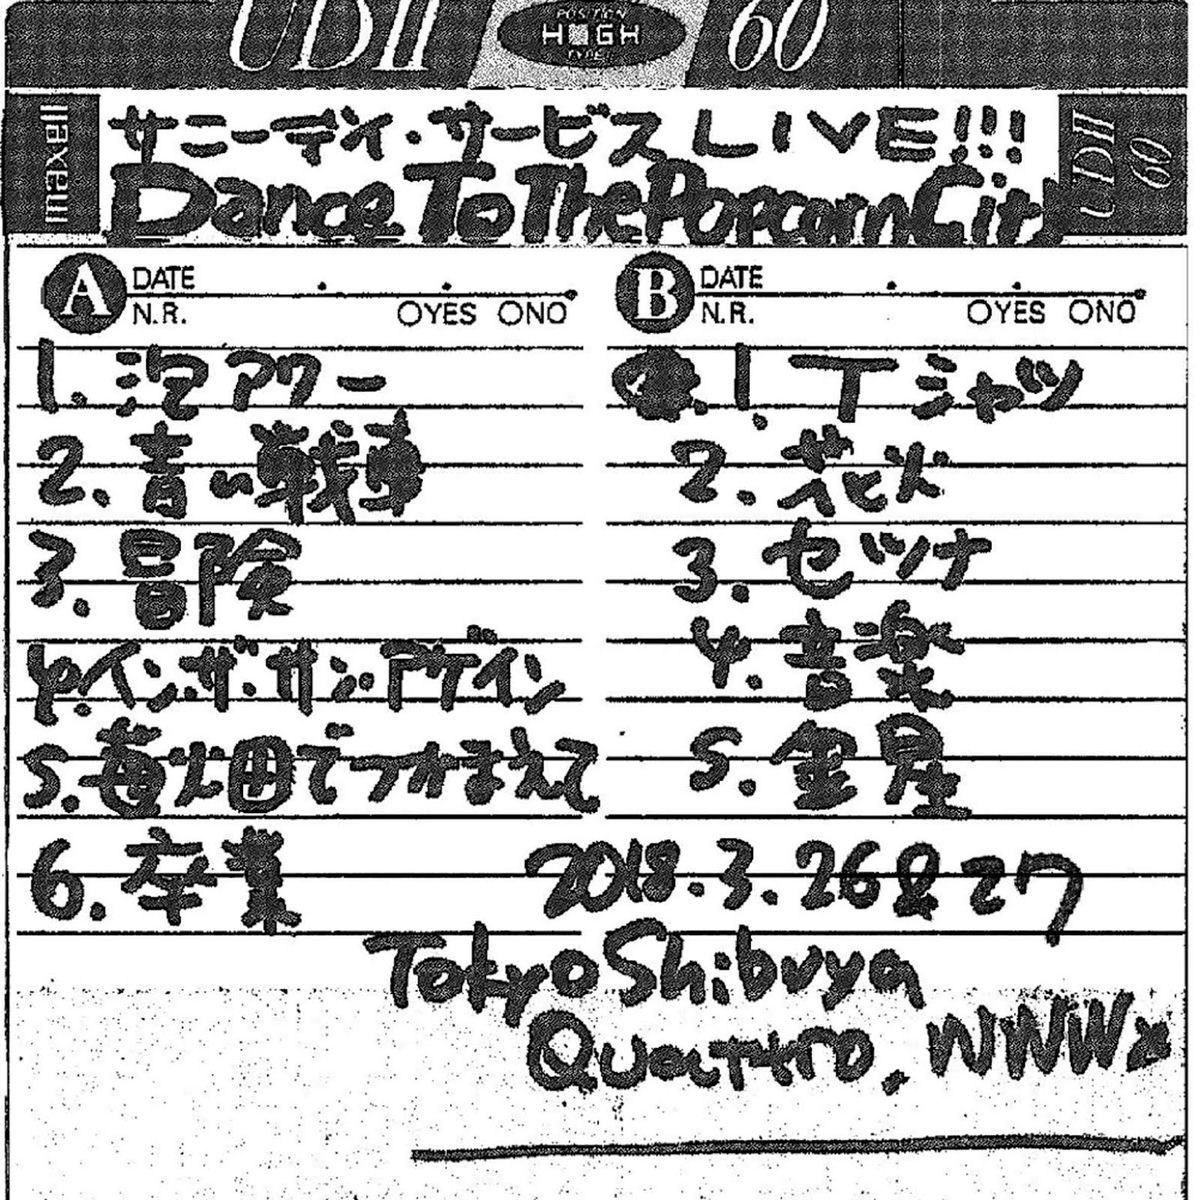 UDII POSITION HIGH TYPE II 60
maxell
サニーデイ・サービス LIVE!!!
Dance To The Popcorn City
UDII 60
A DATE . .
N.R. ○YES ○NO
1. 泡アワー
2. 青い戦車
3. 冒険
4. イン・ザ・サン・アゲイン
5. 苺畑でつかまえて
6. 卒業
B DATE . .
N.R. ○YES ○NO
1. Tシャツ
2. 花火
3. セツナ
4. 音楽
5. 金星
2018.3.26&27
Tokyo Shibuya
Quattro, WWWx